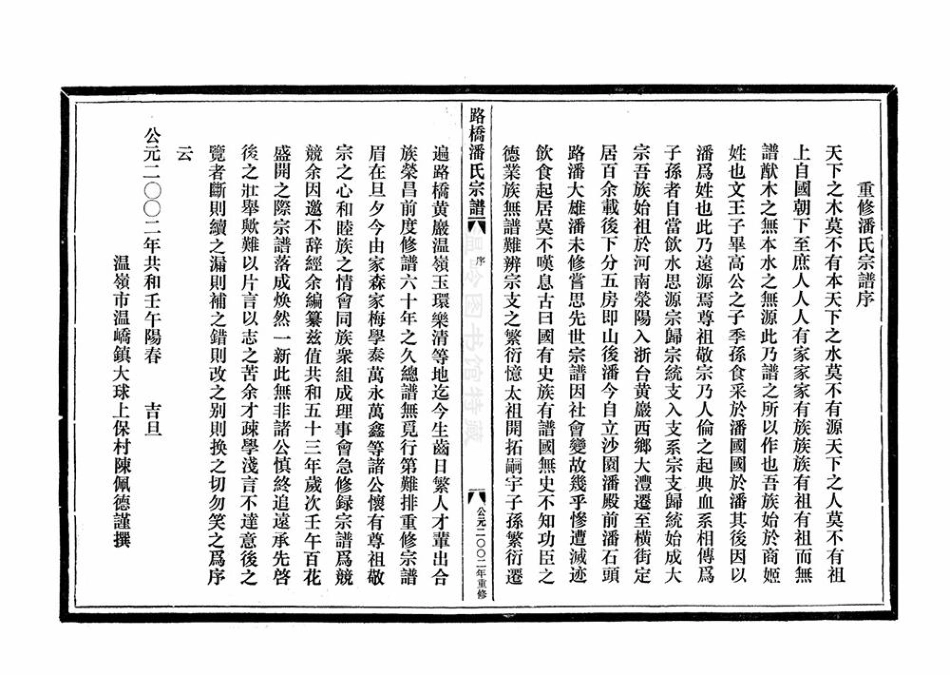 重修潘氏宗譜序
天下之木莫不有本天下之水莫不有源天下之人莫不有祖
上自國朝下至庶人人人有家家家有族族族有祖有祖而無
譜猷木之無本水之無源此乃譜之所以作也吾族始於商姬
姓也文王子畢高公之子季孫食采於潘國國於潘其後因以
潘爲姓也此乃遠源焉尊祖敬宗乃人倫之起典血系相傳爲
子孫者自當飲水思源宗歸宗統支入支系宗支歸統始成大
宗吾族始祖於河南滎陽入浙台黄巖西鄉大澧遷至橫街定
居百余載後下分五房即山後潘今自立沙園潘殿前潘石頭
路潘大雄潘未修嘗思先世宗譜因社會變故幾乎慘遭滅迹
飲食起居莫不嘆息古曰國有史族有譜國無史不知功臣之
德業族無譜難辨宗支之繁衍憶太祖開拓嗣宇子孫繁衍遷
路橋潘氏宗譜
序
公元二〇〇二年重修
遍路橋黄巖温嶺玉環樂清等地迄今生齒日繁人才輩出合
族榮昌前度修譜六十年之久總譜無覓行第難排重修宗譜
眉在旦夕今由家森家梅學泰萬永萬鑫等諸公懷有尊祖敬
宗之心和睦族之情會同族衆組成理事會急修録宗譜爲競
競余因邀不辞經余編纂兹值共和五十三年歲次壬午百花
盛開之際宗譜落成焕然一新此無非諸公慎終追遠承先啓
後之壯舉歟難以片言以志之苦余才疎學淺言不達意後之
覽者斷則續之漏則補之錯則改之别則換之切勿笑之爲序
云
公元二〇〇二年共和壬午陽春 吉旦
温嶺市温嶠鎮大球上保村陳佩德謹撰